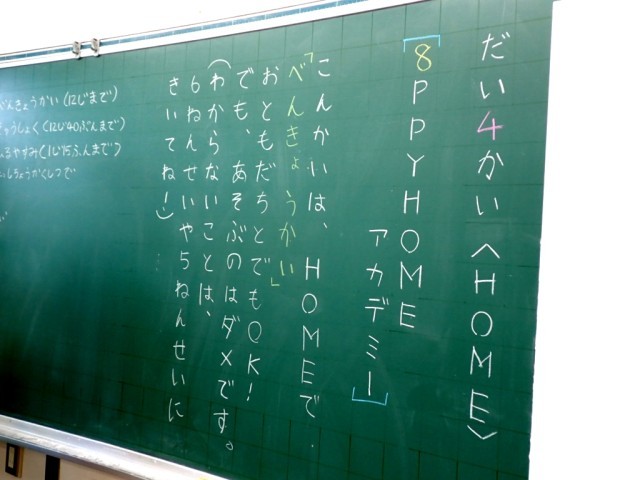 だい4かい〈HOME〉
「8PPYHOME
アカデミー」
こんかいは、HOMEで
「べんきょうかい」
おともだちとでもOK!
でも、あそぶのはダメです。
(わからないことは、
6ねんせいや5ねんせいに
きいてね!)
べんきょうかい(12じまで)
ゅうしょく(12じ40ぷんまで)
るやすみ(1じ15ふんまで)
しちょうかくしつで